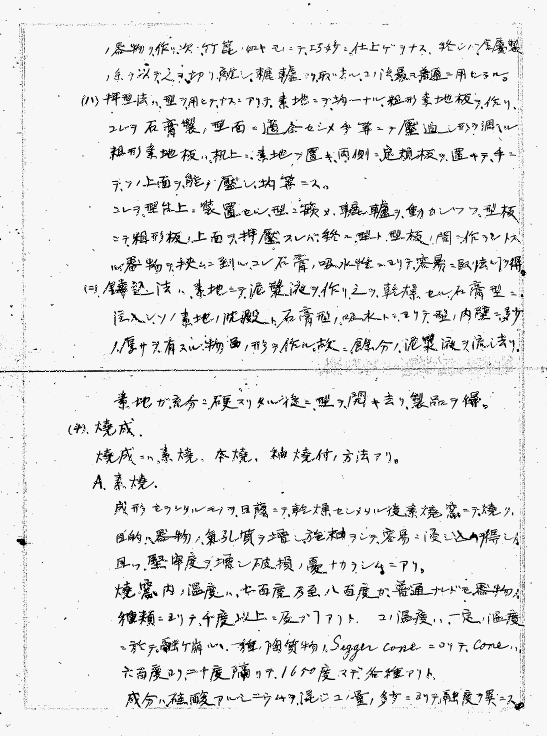 ノ器物ヲ作リ次ニ竹箆、
ノ糸ヲ以テ之ヲ切リ離シ轆轤ヨリ取去ル、コノ法最モ普通ニ用ヒラル。
(ハ) 押型法ハ、型ヲ用ヒテナスニアリテ素地ニテ均一ナル粗形素地板ヲ作リ、
コレヲ石膏製ノ型面ニ適合セシメ手等ニテ壓迫シ形ヲ調フル
粗形素地板ハ、机上ニ素地ヲ置キ両側ニ定規板ヲ置キテ手ニ
テソノ上面ヲ能ク壓シ均等ニス。
コレヲ型台上ニ装置セル型ニ嵌メ、轆轤ヲ動カシツツ型板
ニテ粗形板ノ上面ヲ押壓スレバ終ニ型ト型板ノ間ニ作ラントス
ル器物ヲ挾ムニ到ル、コレ石膏ノ吸水性ニヨリテ容易ニ取去リ得。
(ニ) 鑄込法ハ素地ニテ泥漿液ヲ作リ之ヲ乾燥セル石膏型ニ
注入シソノ素地ノ沈澱ト石膏型ノ吸水トニヨリテ型ノ内壁ニ多少
ノ厚サヲ有スル物面ノ形ヲ作ル、故ニ餘分ノ泥漿液ヲ流シ去リ、
素地ガ充分ニ硬マリタル後ニ型ヲ開キ去リ製品ヲ得。
燒成.
燒成ニハ素燒、本燒、釉燒付ノ方法アリ。
A. 素燒.
成形セラレタルモノヲ日蔭ニテ乾燥セシメタル後素燒窯ニテ燒ク、
目的ハ器物ノ氣孔質ヲ增シ施釉ヲシテ容易ニ浸シ込ミ得シメ
且ツ堅牢度ヲ增シ破損ノ憂ナカラシムニアリ。
燒窯内ノ温度ハ、七百度乃至八百度ガ普通ナレドモ器物ノ
種類ニヨリテ千度以上ニ及ブアリト. コノ温度ハ、一定ノ温度
ニ於テ融ケ崩ルル一種ノ陶質物ノ Segger cone ニヨリテ cone ハ、
六百度ヨリ二十度隔リテ 1650度マデ各種アリト.
成分ハ硅酸アルミニウムヲ混ジコノ量ノ多少ニヨリテ融度ヲ異ニス